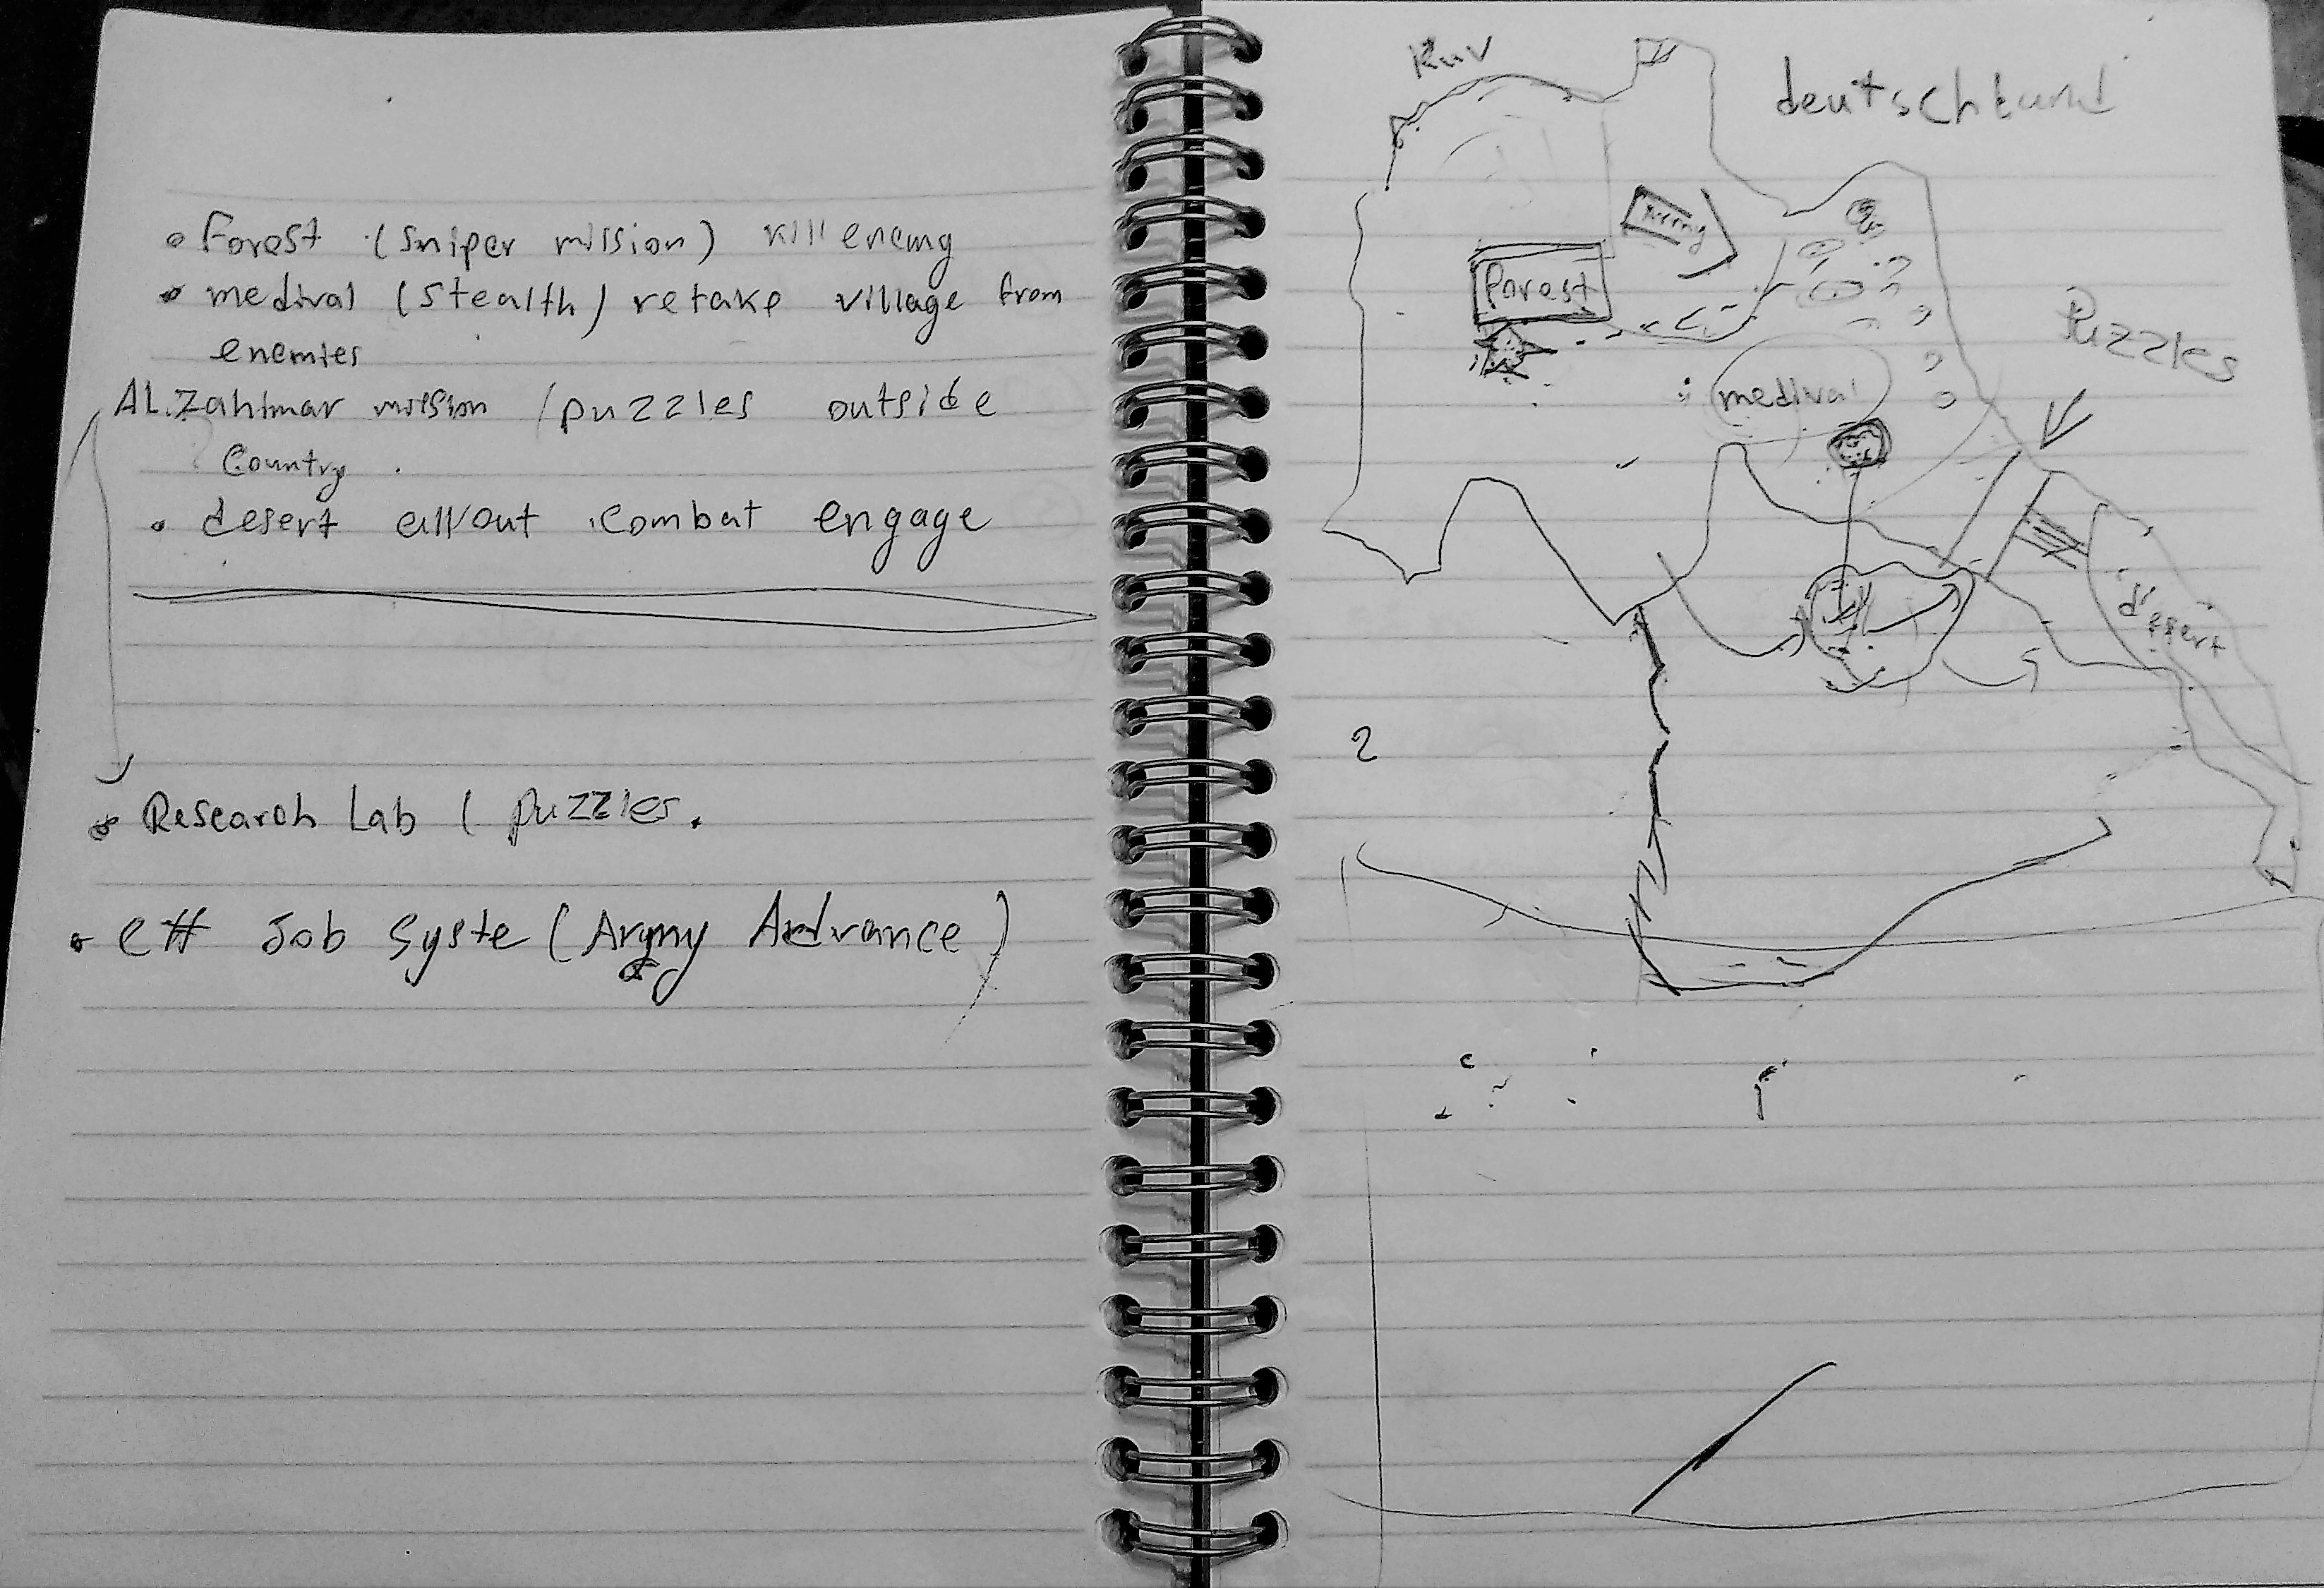 Forest (sniper mission) kill enemy
medival (stealth) retake village from
enemies
AL.Zahimar mission (puzzles outside
Country.
desert allout combat engage
Research Lab ( puzzles.
c# Job Syste (Army Advance)
deutschland
Forest
Puzzles
medival
desert
2